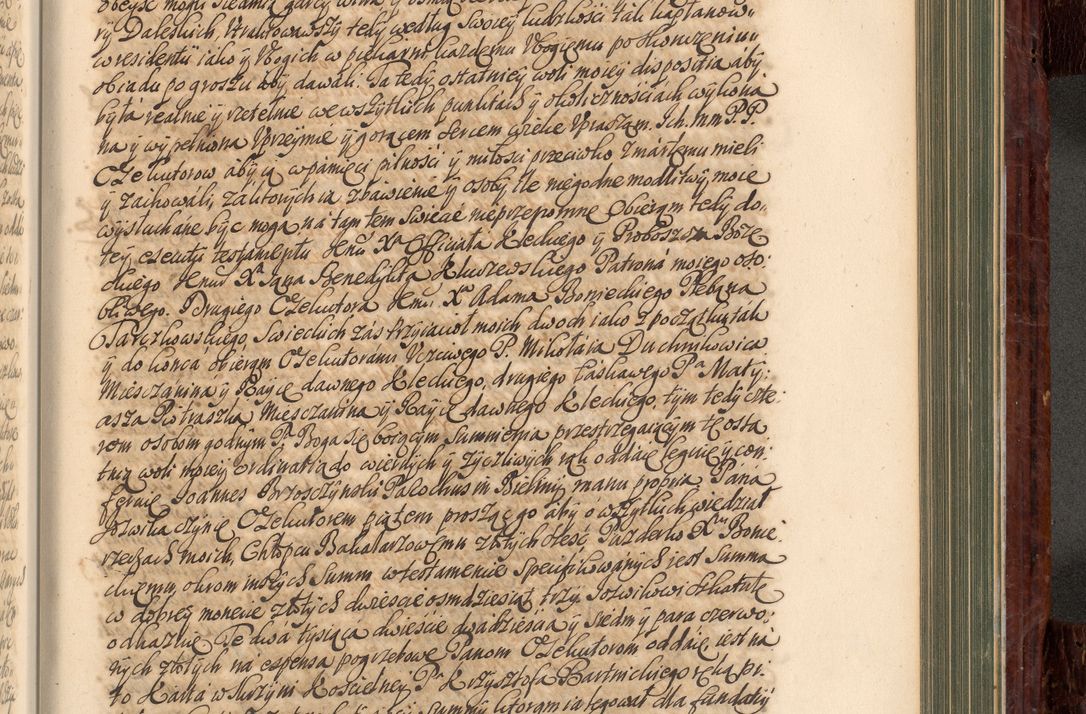 ry Daleskich. Vkalkowawszy tedy według swoiey ludzkości tak kapłanow
w residentii iako y Vbogich w piekarni każdemu Vbogiemu po skonczeniu
obiadu po groszu aby dawali. Ta tedy ostatniey woli moiey dispositia aby
była realnie y rzetelnie we wszytkich punktach y okolicznosciach wykona
na y wypełniona Vprzeymie y gorącem sercem wielce Vpraszam. Ich. mm P.P.
Exekutorow aby ią w pamięci pilności y miłosci przeciwko zmarłemu mieli
y zachowali, za ktorych ia zbawienie y osoby, ile niegodne modlitwy moie
wysłuchane być mogą na tamtem swiecie nieprzepomnę. Obieram tedy do
tey executii testamentu Jenu Xa Officiała Kleckiego y Proboszcza Boże
ckiego Jenu Xa Jana Benedykta Kluczewskiego Patrona moiego oso:
bliwego. Drugiego Exekutora Jenu Xa Adama Bonieckiego Plebana
Parczkowskiego, Swieckich zás przyiacioł moich dwoch iako z początku tak
y do końca obieram Exekutorami Vczciwego P. Mikołaia Duchnikowica
Miesczanina y Raycę dawnego Kleckiego, drugiego łaskawego Pa Maty:
asza Piotraszka Miesczanina y Raycę dawnego Kleckiego, tym tedy czte:
rem osobom godnym Pa Boga się boiącym Sumnienia przestrzegaiącym tę osta
tnią woli moiey ordinatią do wiernych y życzliwych rąk oddaię leguię y con:
feruię Joannes Brzosczynski Parochus in Bieliny manu propria Pana
Jozwika czynię Exekutorem piątem prosząc go aby o wszytkich wiedział
rzeczach moich, Chłopcu Bakałarzowemu złotych ośść Pazderko Xm Bonie:
ckiemu, okrom inszych Summ w testamencie specifikowanych iest Summa
w dobrey monecie złotych dwiescie osmdziesiąt trzy. Jozwikowi szkatułę
odkaznię. Te dwa tysiąca dwieście dwadzieścia y siedm y para czerwo:
nych złotych na expensa pogrzebowe Panom Exekutorom oddaię, iest na
to karta w skrzyni Koscielney Pa Krzysztofa Bartnickiego ręką pi: